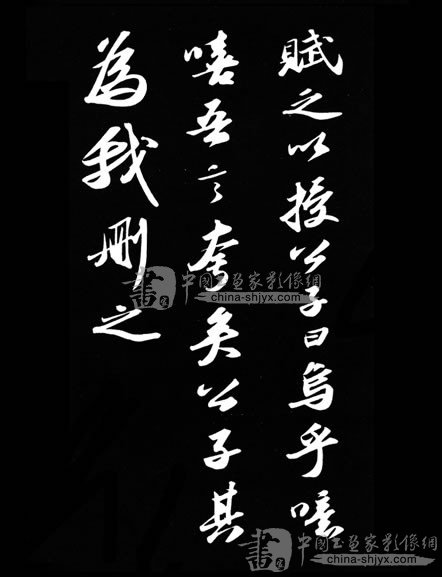 賦之以授公子曰烏乎噫
嘻吾言夸矣公子其
為我刪之
書 中國书畫家影像網
china-shjyx.com
書 中國书畫家影像網
china-shjyx.com